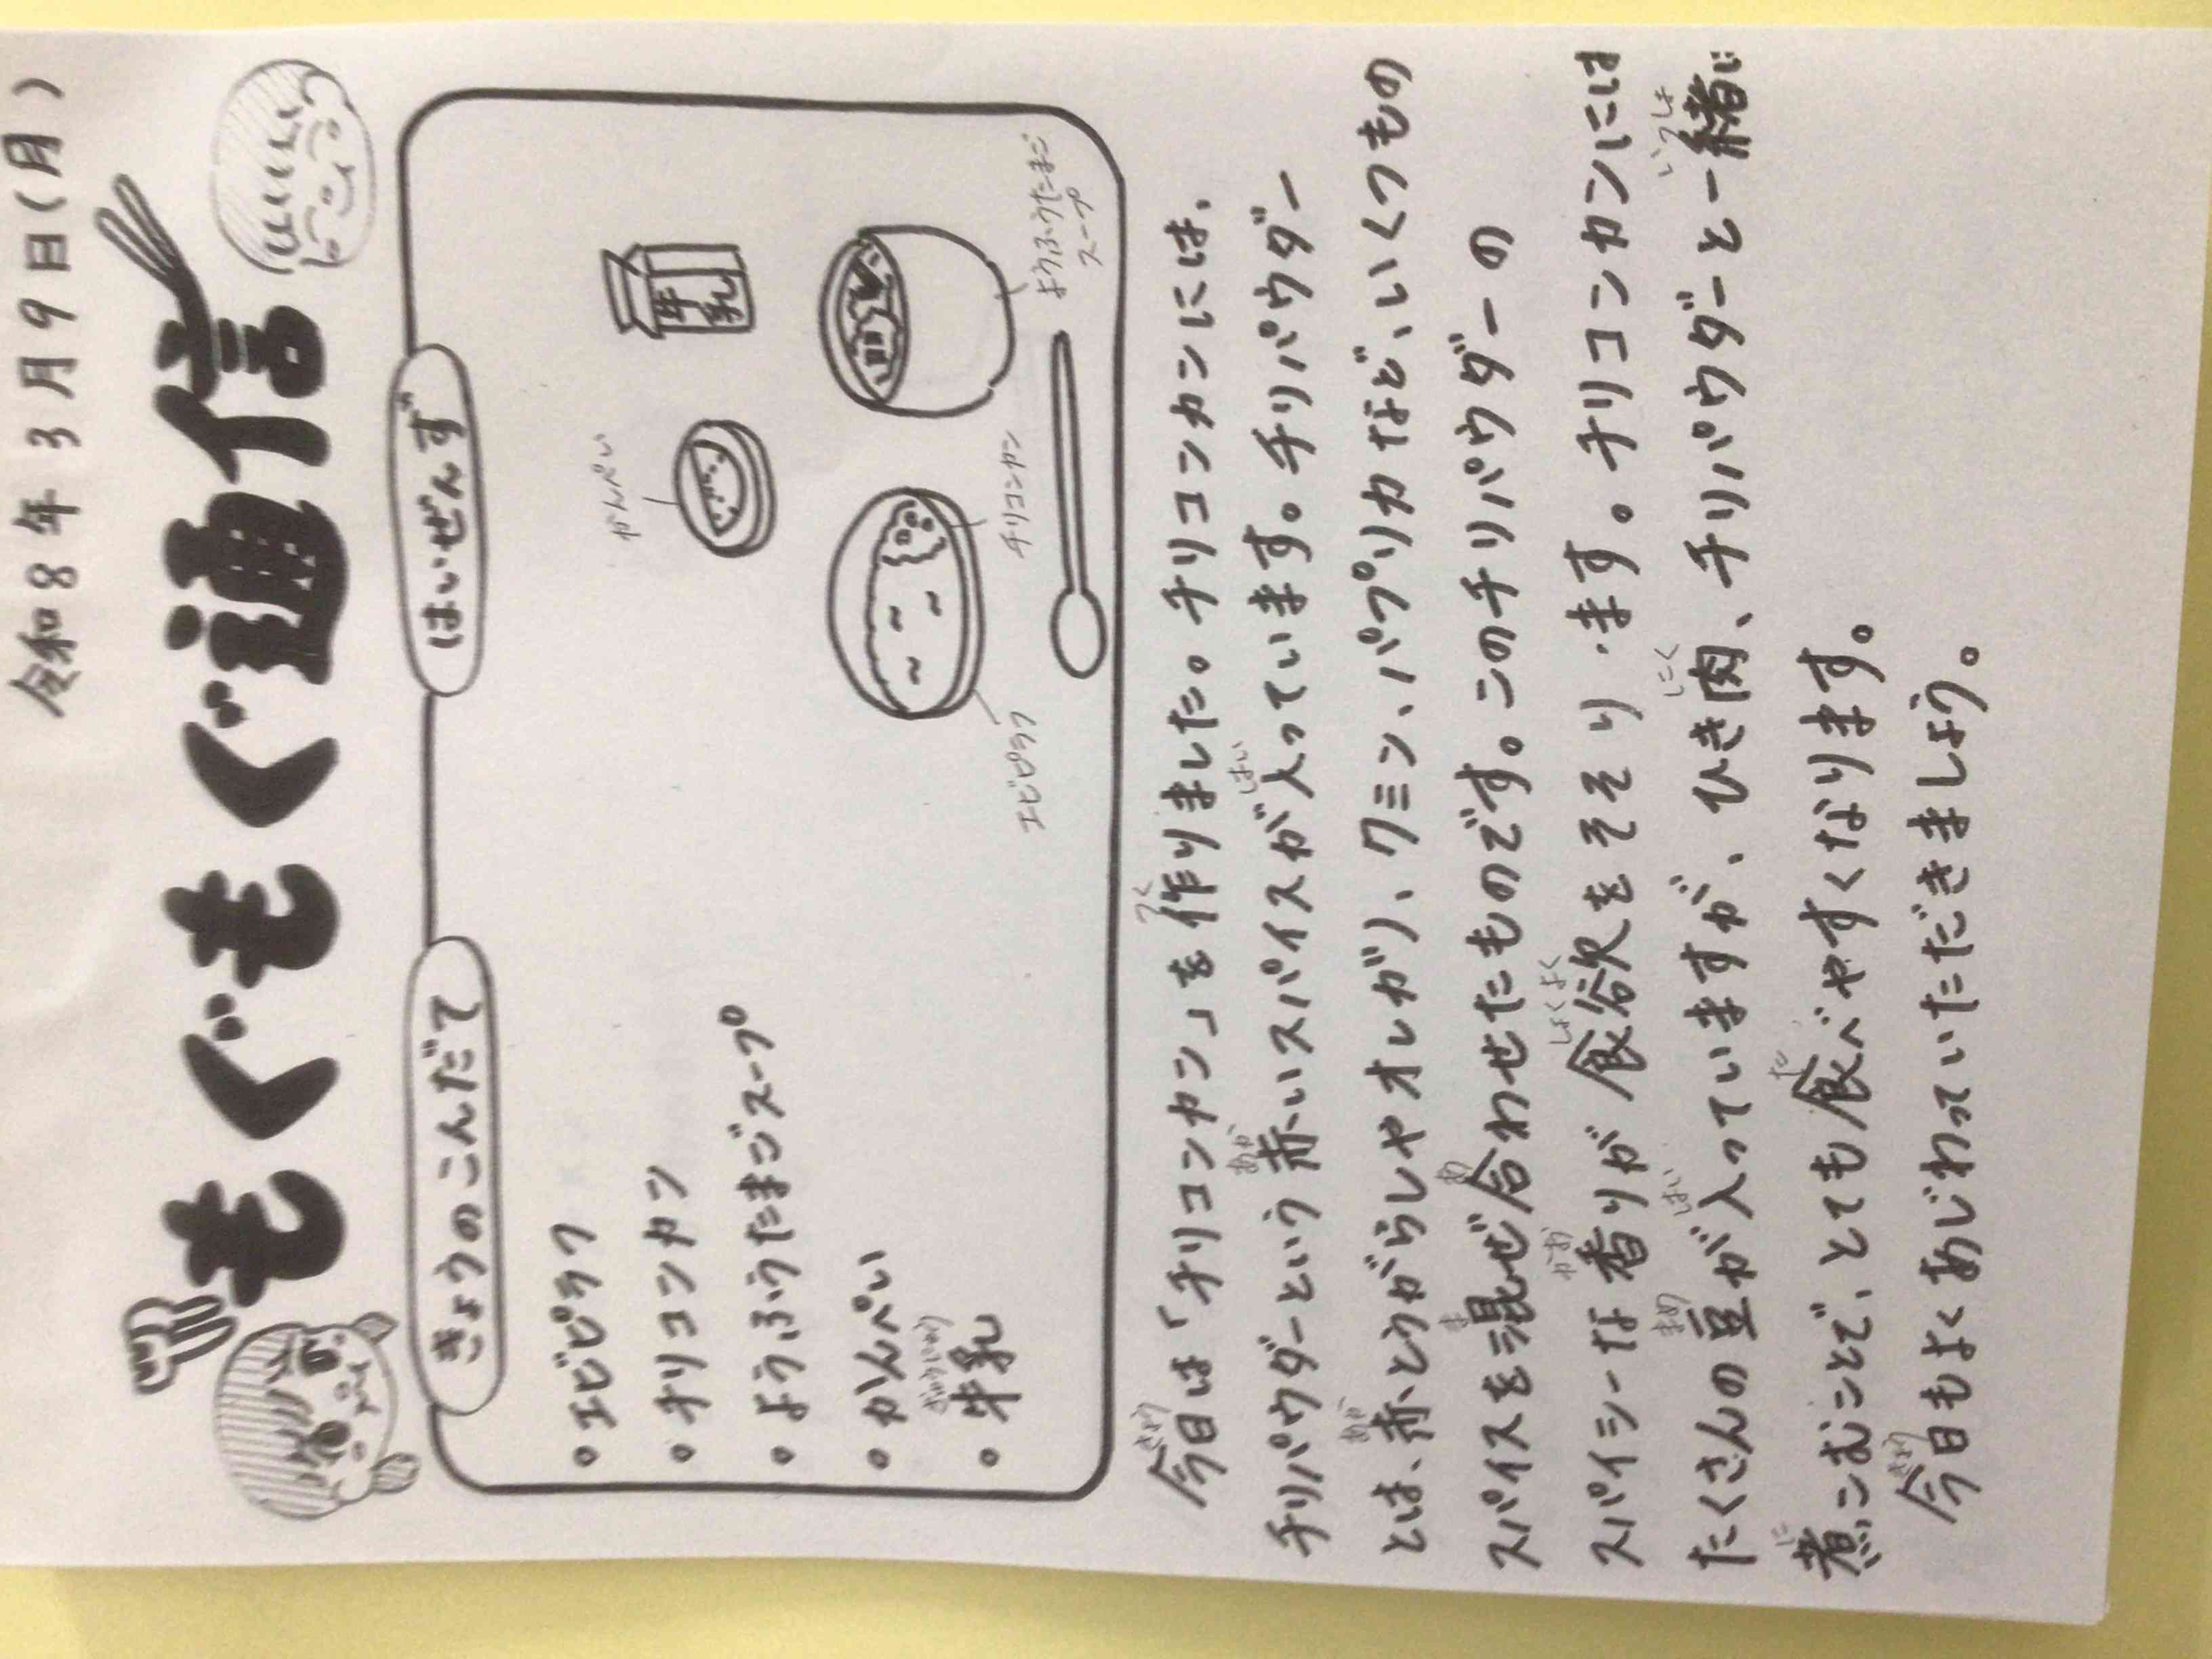 令和8年3月9日(月)
もぐもぐ通信
きょうのこんだて
・エビピラフ
・チリコンカン
・ようふうたまごスープ
・かんぺい
ぎゅうにゅう
・牛乳
はいぜんず
かんぺい
牛乳
エビピラフ
チリコンカン
ようふうたまご
スープ
きょう つく
今日は「チリコンカン」を作りました。チリコンカンには、
あか はい
チリパウダーという赤いスパイスが入っています。チリパウダー
あか
とは、赤とうがらしやオレガノ、クミン、パプリカなど、いくつもの
ま あ
スパイスを混ぜ合わせたものです。このチリパウダーの
かお しょくよく
スパイシーな香りが食欲をそそります。チリコンカンには
まめ はい にく いっしょ
たくさんの豆が入っていますが、ひき肉、チリパウダーと一緒に
に た
煮こむことで、とても食べやすくなります。
きょう
今日もよくあじわっていただきましょう。